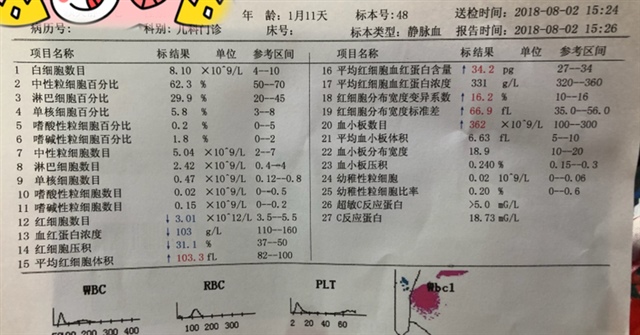 年 龄：1月11天 标本号：48 送检时间：2018-08-02 15:24
病历号： 科别：儿科门诊 床号： 标本类型：静脉血 报告时间：2018-08-02 15:26
项目名称 标 结果 单位 参考区间 项目名称 标 结果 单位 参考区间
1 白细胞数目 8.10 ×10^9/L 4--10 16 平均红细胞血红蛋白含量 ↑ 34.2 pg 27--34
2 中性粒细胞百分比 62.3 % 50--70 17 平均红细胞血红蛋白浓度 331 g/L 320--360
3 淋巴细胞百分比 29.9 % 20--45 18 红细胞分布宽度变异系数 ↑ 16.2 % 10--16
4 单核细胞百分比 5.8 % 3--8 19 红细胞分布宽度标准差 ↑ 66.9 fL 35.0--56.0
5 嗜酸性粒细胞百分比 0.2 % 0--5 20 血小板数目 ↑ 362 ×10^9/L 100--300
6 嗜碱性粒细胞百分比 1.8 % 0--2 21 平均血小板体积 6.63 fL 5--10
7 中性粒细胞数目 5.04 ×10^9/L 2--7 22 血小板分布宽度 18.9 10--20
8 淋巴细胞数目 2.42 ×10^9/L 0.4--4 23 血小板压积 0.240 % 0.15--0.3
9 单核细胞数目 0.47 ×10^9/L 0.12--0.8 24 幼稚性粒细胞 0.02 10^9/L 0--0.06
10 嗜酸性粒细胞数目 0.02 ×10^9/L 0--0.5 25 幼稚性粒细胞比率 0.20 % 0--0.6
11 嗜碱性粒细胞数目 0.15 ×10^9/L 0--0.2 26 超敏C反应蛋白 >5.0 mG/L
12 红细胞数目 ↓ 3.01 ×10^12/L 3.5--5.5 27 C反应蛋白 18.73 mG/L
13 血红蛋白浓度 ↓ 103 g/L 110--160
14 红细胞压积 ↓ 31.1 % 37--50
15 平均红细胞体积 ↑ 103.3 fL 82--100
WBC RBC PLT Wbc1
50100 200 300 400 100 200 300 2 20 40 60